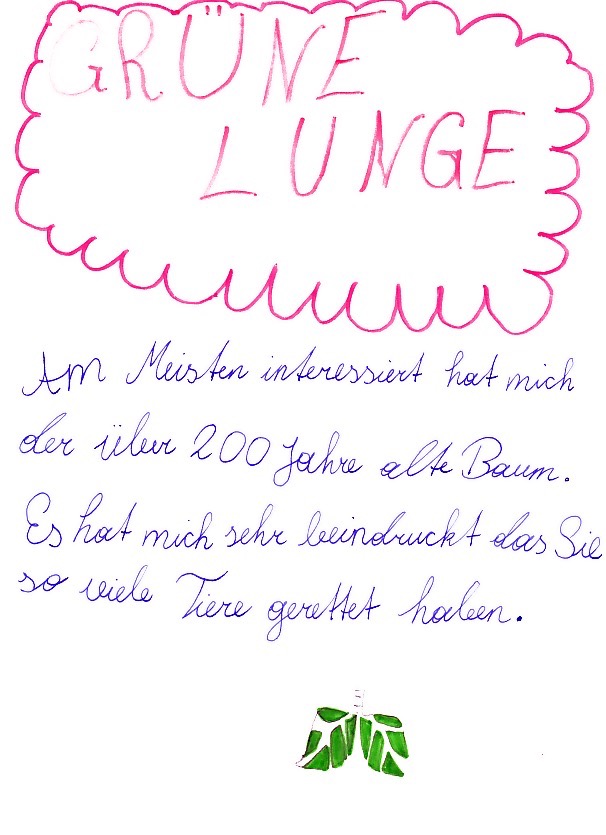 GRÜNE
LUNGE
Am Meisten interessiert hat mich
der über 200 Jahre alte Baum.
Es hat mich sehr beindruckt das Sie
so viele Tiere gerettet haben.